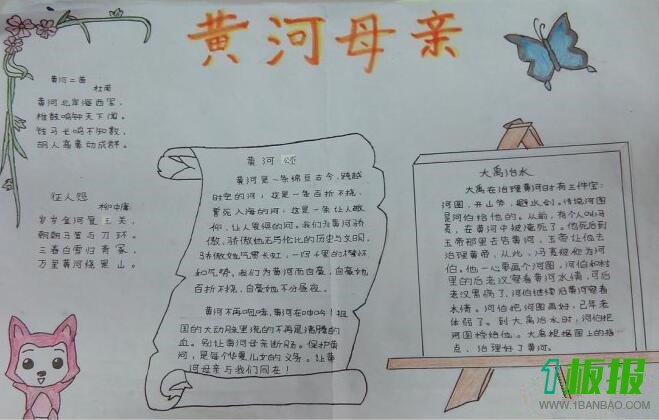 黄河母亲
黄河二首
杜甫
黄河北岸海西军，
椎鼓鸣钟天下闻。
铁马长鸣不知数，
胡人高鼻动成群。
征人怨
柳中庸
岁岁金河复玉关，
朝朝马策与刀环。
三春白雪归青冢，
万里黄河绕黑山。
黄河 颂
黄河是一条绵亘古今，跨越
时空的河；这是一条百折不挠，
奔死入海的河；这是一条让人敬
仰，让人畏惧的河。我们为黄河骄
傲，骄傲她无与伦比的历史与文明，
骄傲她气贯长虹，一日千里的情怀
和气势。我们为黄河而自豪，自豪她
百折不挠，自豪她不分昼夜。
黄河不再咆哮，黄河在呻吟！祖
国的大动脉里流的不再是沸腾的
血。别让黄河母亲断流。保护黄
河，是每个华夏儿女的义务。让黄
河母亲与我们同在！
大禹治水
大禹在治理黄河时有三件宝：
河图，开山斧，避水剑。传说河图
是河伯给他的。从前，有个人叫冯
夷，在黄河中被淹死了。他死后到
玉帝那里去告黄河，玉帝让他去
治理黄帝，从此，冯夷被称为河
伯。他一心要画个河图，河伯和村
里的后老汉察看黄河水情，可后
老汉累病了，河伯继续沿黄河察看
水情。河伯把河图画好，已年老
体弱了。到大禹治水时，河伯把
河图授给他。大禹根据图上的指
点，治理好了黄河。
1板报
WWW.1BANBAO.COM